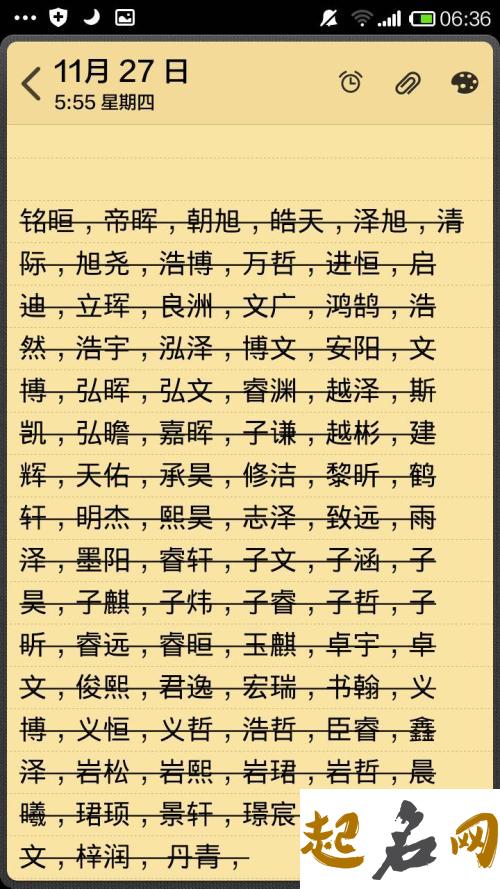 06:36
11月 27 日
5:55 星期四
铭晅，帝晖，朝旭，皓天，泽旭，清
际，旭尧，浩博，万哲，进恒，启
迪，立珲，良洲，文广，鸿鹄，浩
然，浩宇，泓泽，博文，安阳，文
博，弘晖，弘文，睿渊，越泽，斯
凯，弘瞻，嘉晖，子谦，越彬，建
辉，天佑，承昊，修洁，黎昕，鹤
轩，明杰，熙昊，志泽，致远，雨
泽，墨阳，睿轩，子文，子涵，子
昊，子麒，子炜，子睿，子哲，子
昕，睿远，睿晅，玉麒，卓宇，卓
文，俊熙，君逸，宏瑞，书翰，义
博，义恒，义哲，浩哲，臣睿，鑫
泽，岩松，岩熙，岩珺，岩哲，晨
曦，珺顼，景轩，璟宸
文，梓润， 丹青，
起名网